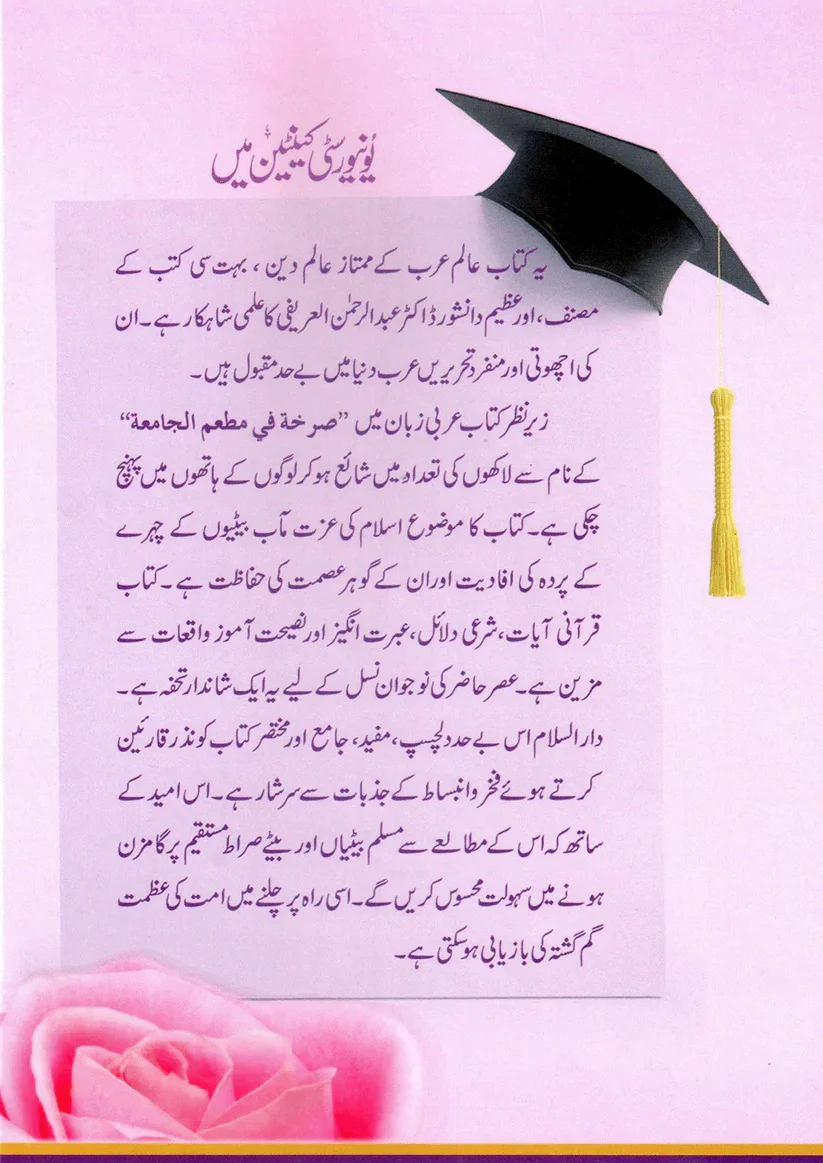 یُونیورسٹی کینٹین میں
یہ کتاب عالم عرب کے ممتاز عالم دین ، بہت سی کتب کے
مصنف، اور عظیم دانشور ڈاکٹر عبدالرحمٰن العریفی کا علمی شاہکار ہے۔ ان
کی اچھوتی اور منفرد تحریریں عرب دنیا میں بے حد مقبول ہیں۔
زیر نظر کتاب عربی زبان میں ”صرخة في مطعم الجامعة“
کے نام سے لاکھوں کی تعداد میں شائع ہو کر لوگوں کے ہاتھوں میں پہنچ
چکی ہے۔ کتاب کا موضوع اسلام کی عزت مآب بیٹیوں کے چہرے
کے پردہ کی افادیت اور ان کے گوہر عصمت کی حفاظت ہے۔ کتاب
قرآنی آیات، شرعی دلائل، عبرت انگیز اور نصیحت آموز واقعات سے
مزین ہے۔ عصر حاضر کی نوجوان نسل کے لیے یہ ایک شاندار تحفہ ہے۔
دارالسلام اس بے حد دلچسپ، مفید، جامع اور مختصر کتاب کو نذر قارئین
کرتے ہوئے فخر و انبساط کے جذبات سے سرشار ہے۔ اس امید کے
ساتھ کہ اس کے مطالعے سے مسلم بیٹیاں اور بیٹے صراط مستقیم پر گامزن
ہونے میں سہولت محسوس کریں گے۔ اسی راہ پر چلنے میں امت کی عظمت
گم گشتہ کی بازیابی ہو سکتی ہے۔